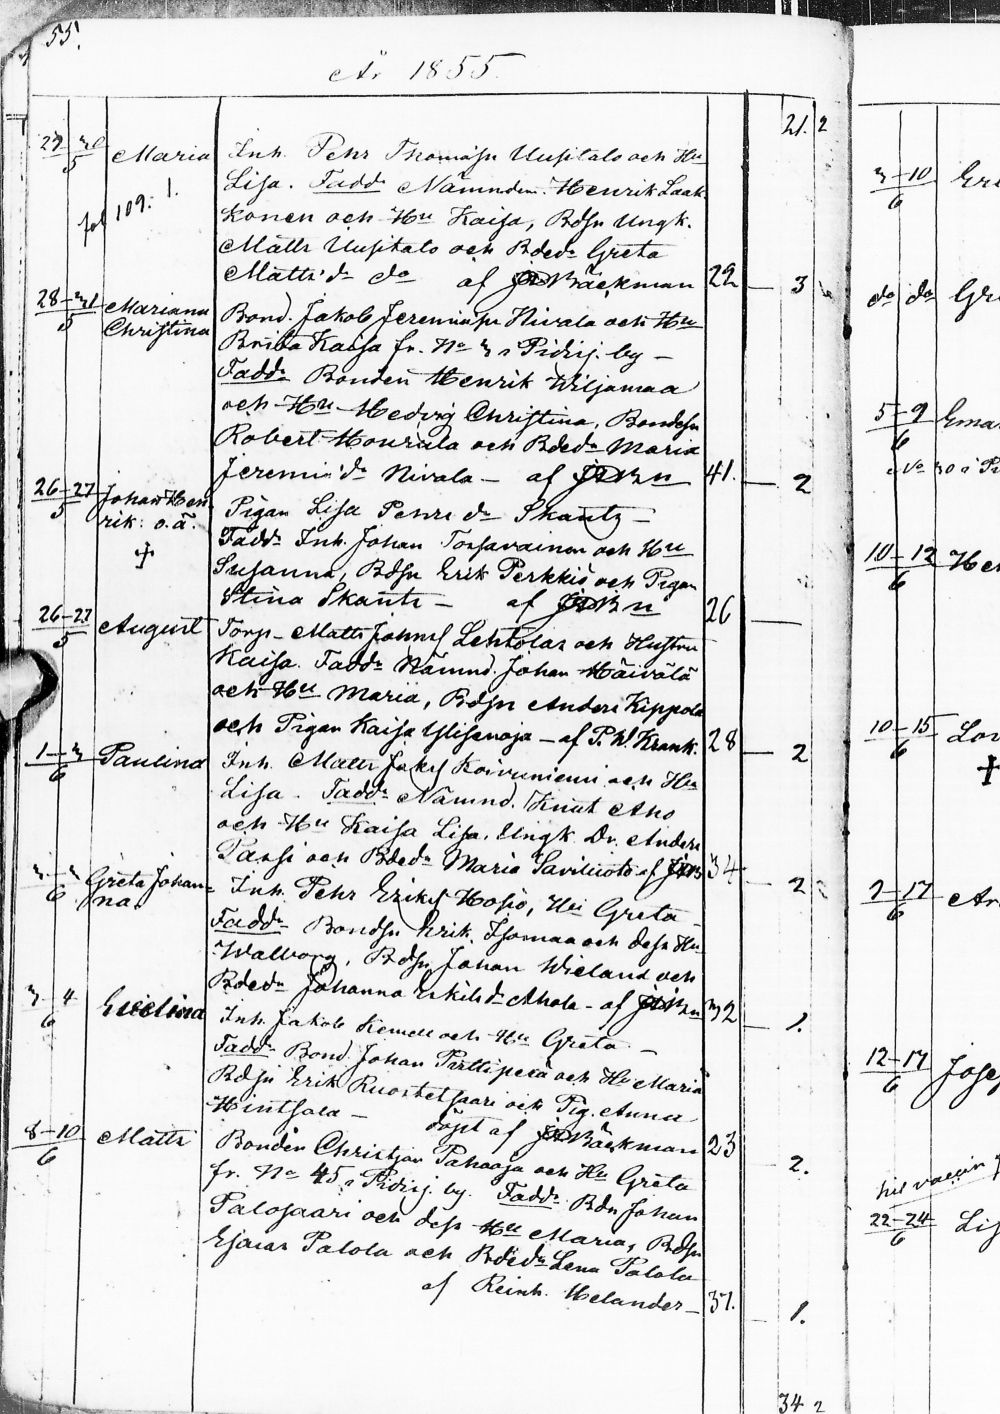 55.
År 1855.
21. 2
29 30 Maria Inh. Pehr Thomæsn Uusitalo och Hu
5
Lisa. Fadd. Nämndem. Henrik Laak-
fol 109: 1.
konen och Hu Kaisa, Bdsn Ungk.
Matts Uusitalo och Bded. Greta
Matts'dr do af JDBäckman 22 3
28-31 Mariana Bond. Jakob Jeremiæsn Nivala och Hu
5 Christina
Brita Kaisa fr. No 3 i Pidisj. by -
Fadd. Bonden Henrik Wiljamaa
och Hu Hedvig Christina, Bondesn
Robert Hourula och Bded. Maria
Jeremiæ dr Nivala - af JDBn 41. 2
26-27 Johan Hen Pigan Lisa Pehrs dr Skantz -
5 rik: o.ä.
Fadd. Inh. Johan Torsavainen och Hu
Susanna, Bdsn Erik Perkkiö och Pigan
Stina Skants - af JDBn 26
26-27 August Torp- Matts Johans Lehtolas och Hustru
5
Kaisa. Fadd. Nämnd. Johan Häivälä
och Hu Maria, Bdsn Anders Kippola
och Pigan Kaisa Ylisenoja - af P. W. Krank. 28 2
1-3 Paulina Inh. Matts Jaks Koivuniemi och Hu
6
Lisa. Fadd. Nämnd. Knut Aho
och Hu Kaisa Lisa, Ungk. Dr. Anders
Passi och Bded. Maria Saviluoto af JDB 34 2
3-3 Greta Johan= Inh. Pehr Eriks Hosio, Hu Greta
6 na.
Fadd. Bondsn Erik Isomaa och dess Hu
Walborg, Bdsn Johan Wieland och
Bded. Johanna Eskils dr Ahola - af JDBn 32 1.
3-4 Evelina Inh. Jakob Kemell och Hu Greta -
6
Fadd. Bond. Johan Pirttiperä och Hu Maria
Bdsn Erik Ruostetsaari och Pig. Anna
Hintsala - döpt af JDBäckman 23 2.
8-10 Matts Bonden Christian Pahaoja och Hu Greta
6
fr. No 45 i Pidisj. by. Fadd. Bdn Johan
Palosaari och dess Hu Maria, Bdsn
Esaias Palola och Bded. Lena Palola
af Reinh. Helander - 37. 1.
34 2
3-10
6
do do
5-9
6
10-12
6
10-15
6
7-17
6
12-17
6
22-24
6